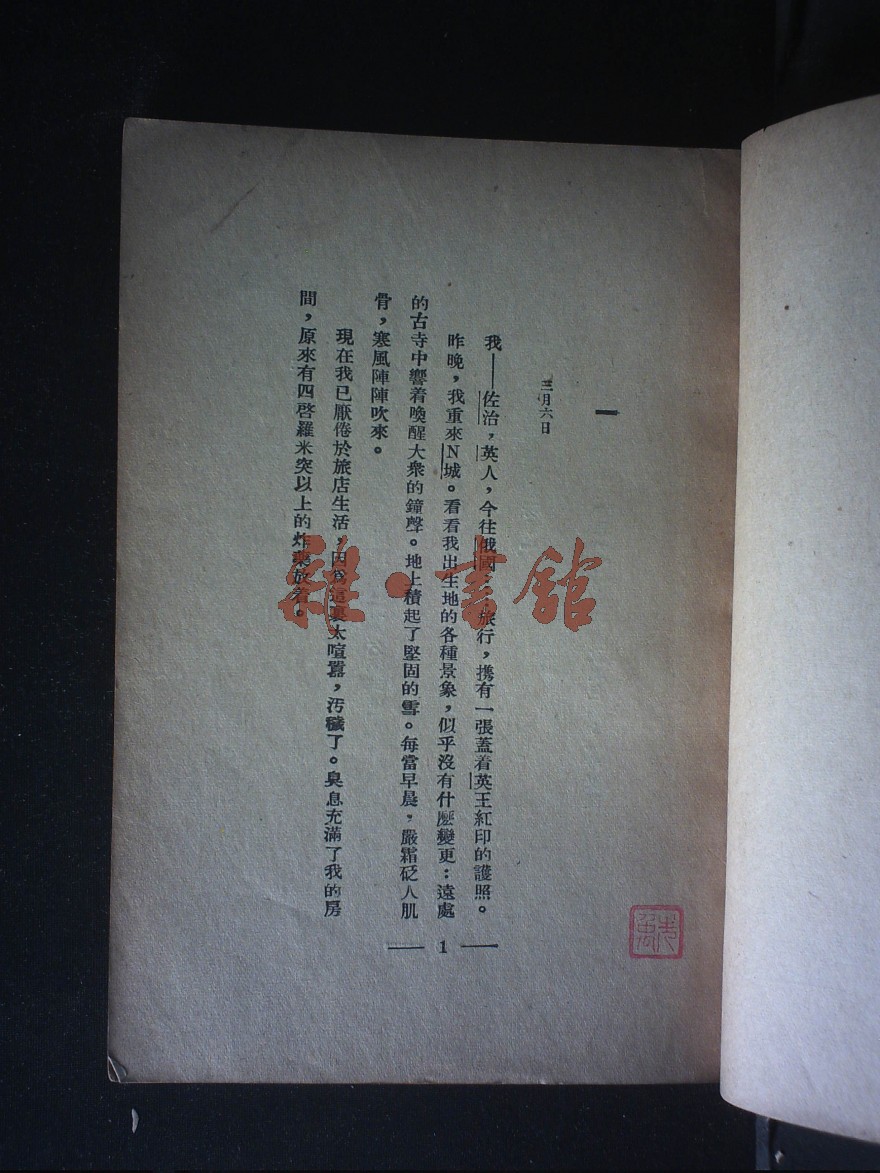 一
三月六日
我——佐治，英人，今往俄國旅行，携有一張蓋着英王紅印的護照。
昨晚，我重來N城。看看我出生地的各種景象，似乎沒有什麽變更：遠處
的古寺中響着喚醒大衆的鐘聲。地上積起了堅固的雪。每當早晨，嚴霜砭人肌
骨，寒風陣陣吹來。
現在我已厭倦於旅店生活，因爲這裏太喧囂，汚穢了。臭息充滿了我的房
間，原來有四啓羅米突以上的炸藥放着。
— 1 —
雜·書館